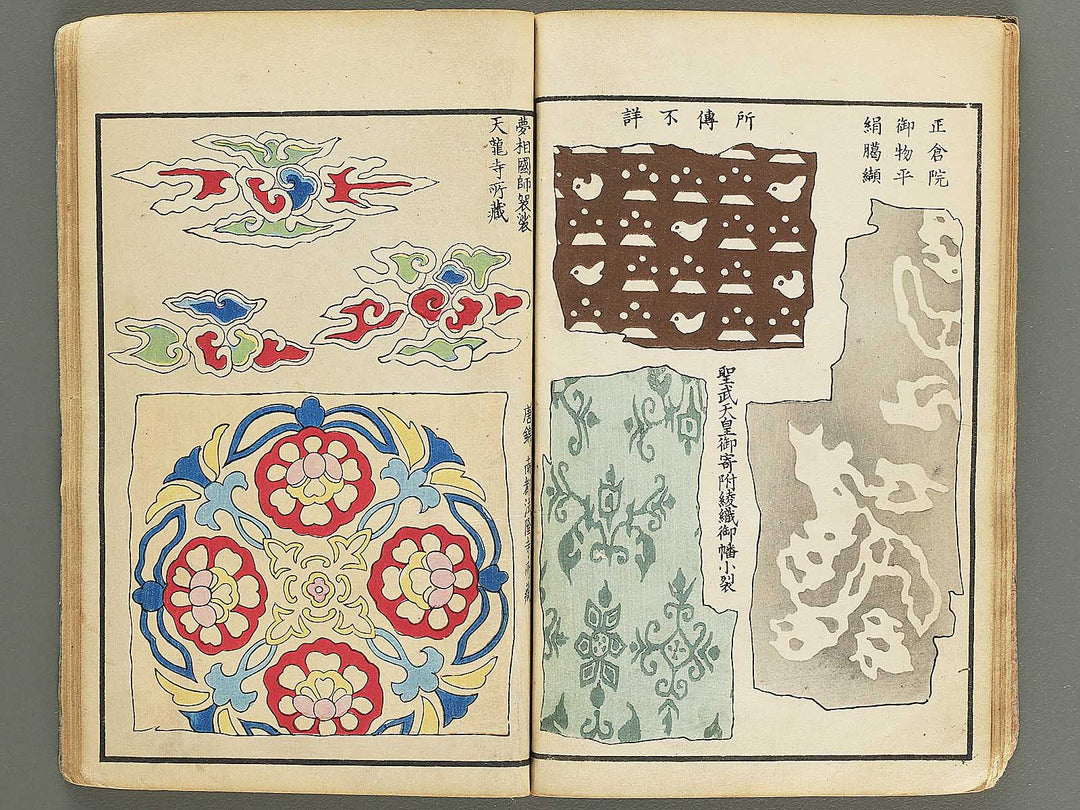 正倉院
御物平
絹﨟纈
所傳不詳
聖武天皇御寄附綾織御幡小裂
夢相國師袈裟
天龍寺所藏
唐錦